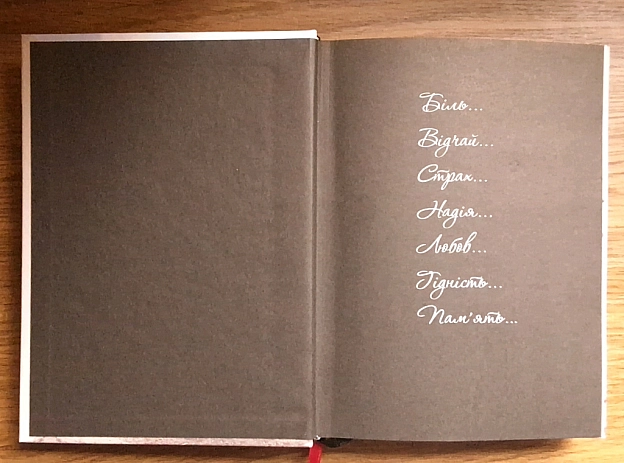 Біль...
Відчай...
Страх...
Надія...
Любов...
Гідність...
Пам'ять...